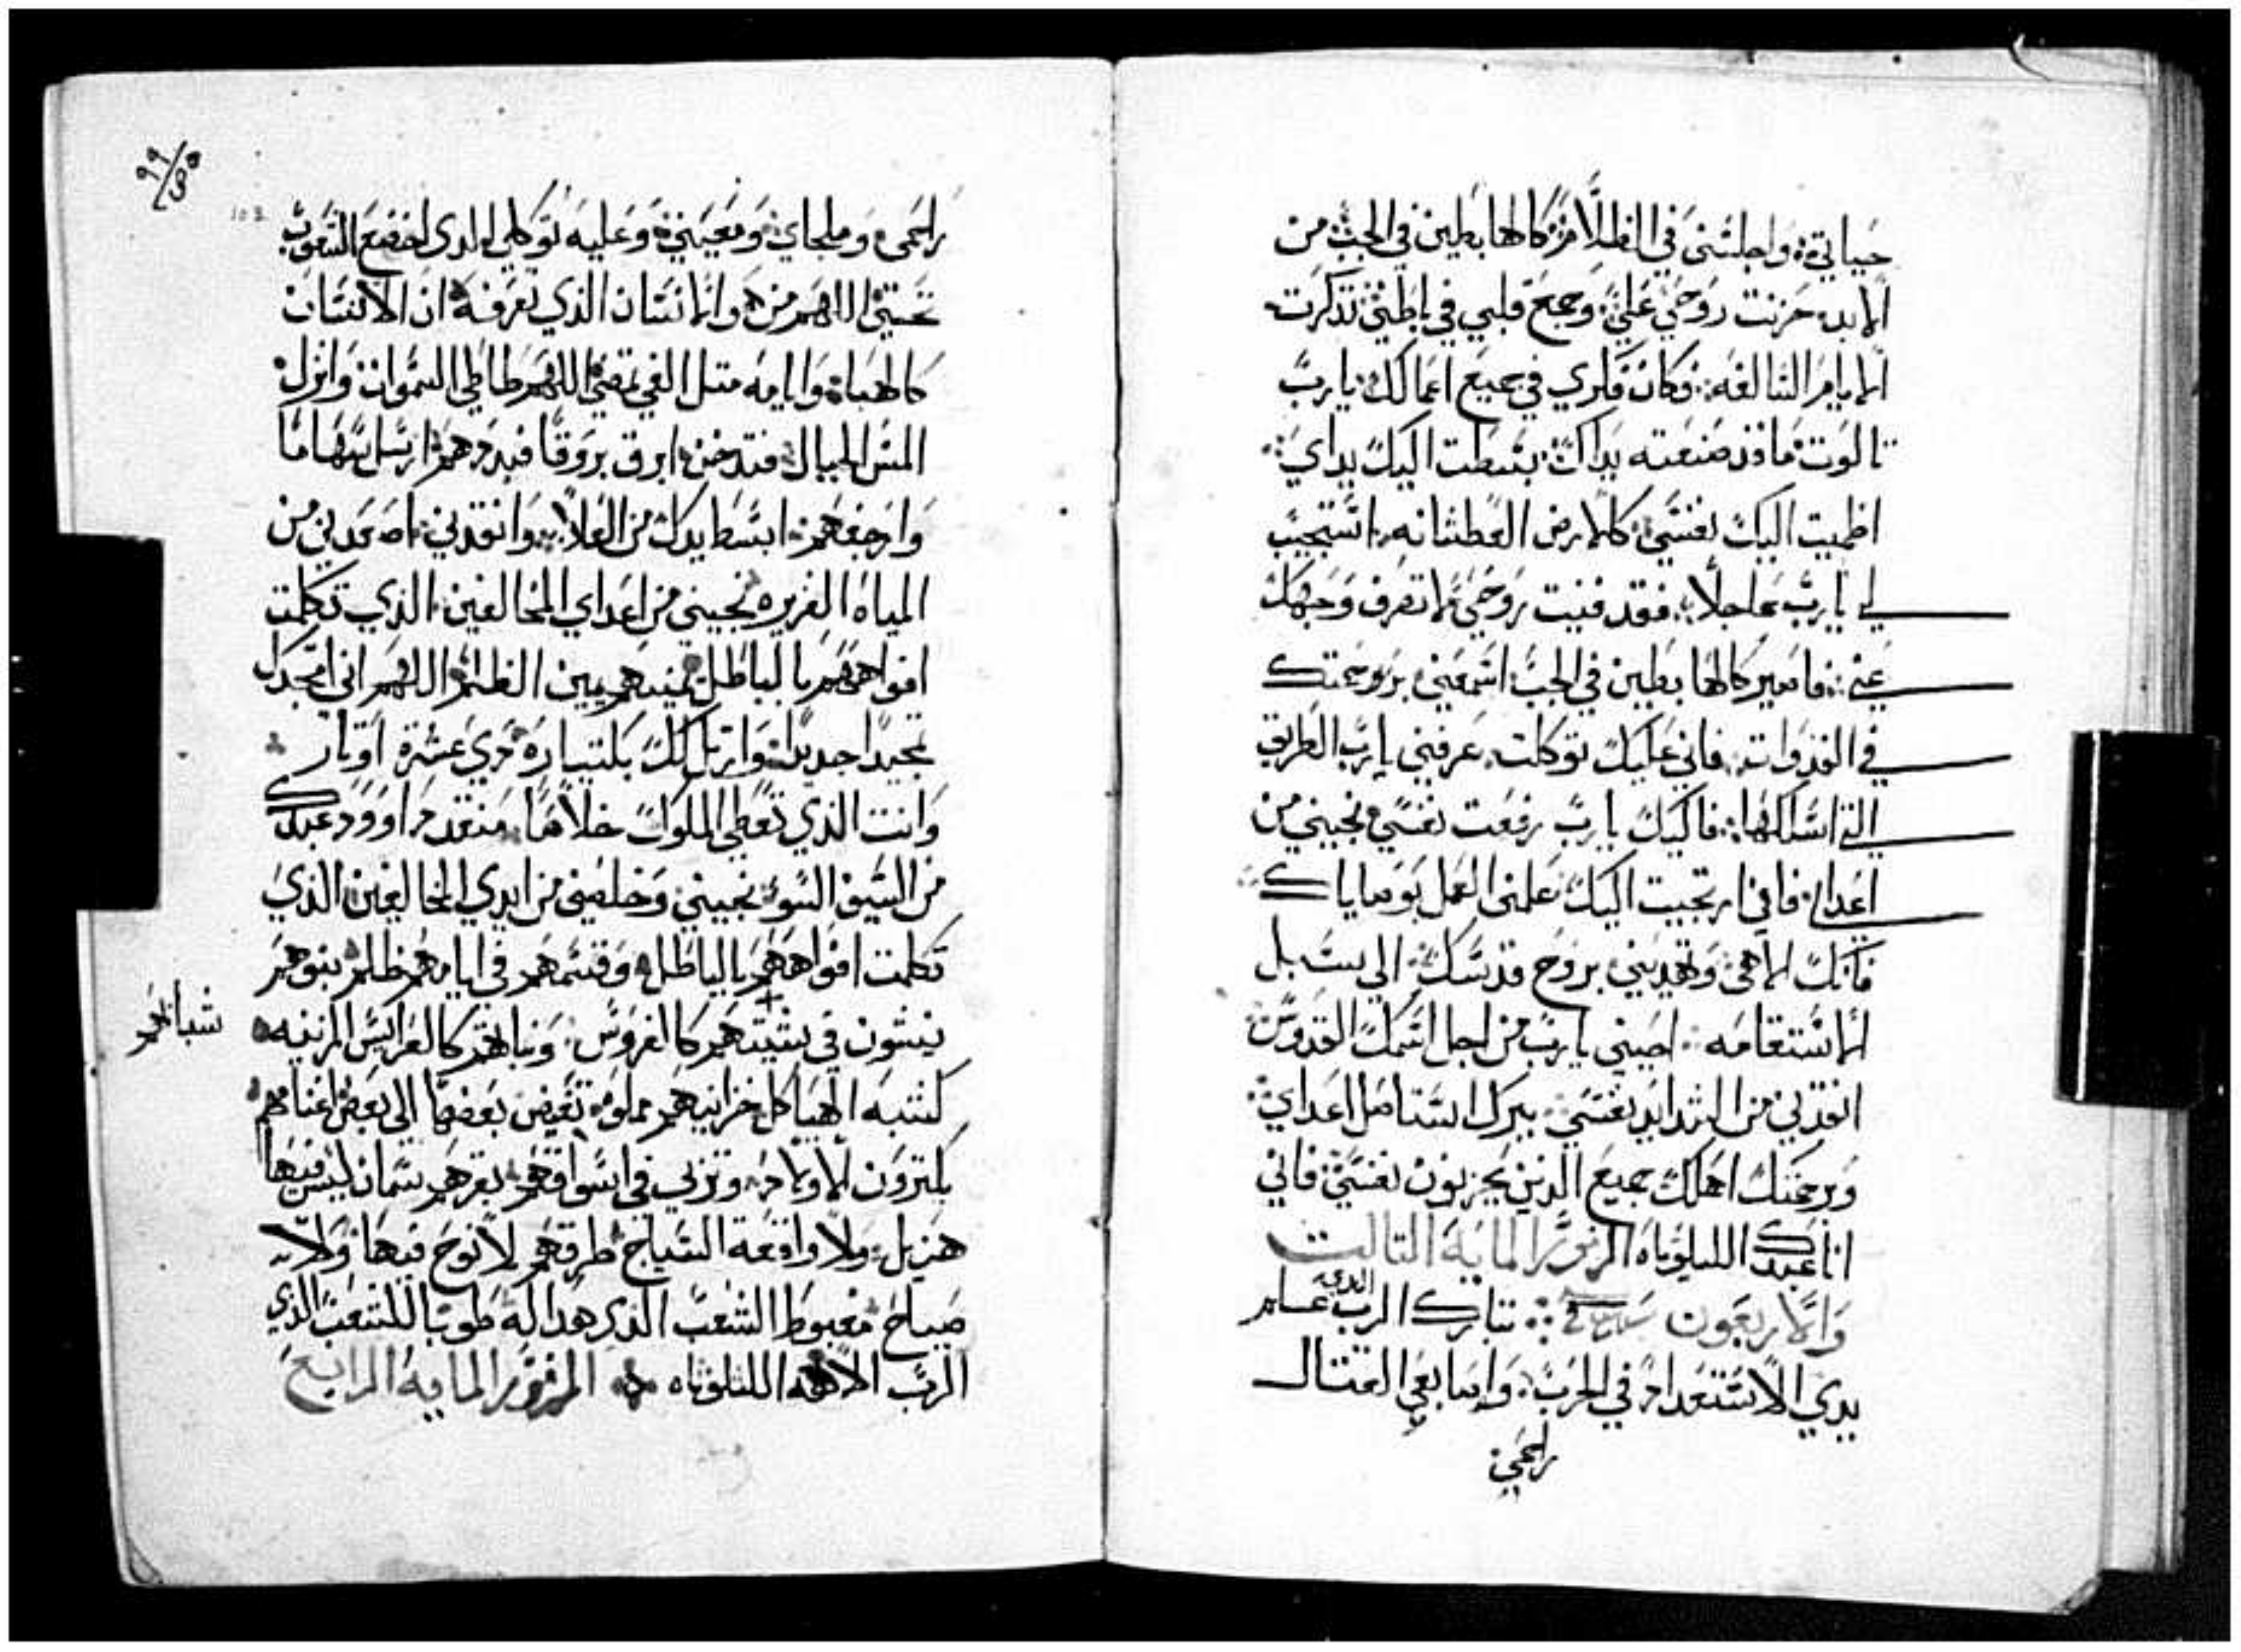 حياتي واجلسني في الظلام كالهابطين في الجب من
الابد حزنت روحي علي وجمع قلبي في باطني تذكرت
الايام السالفه فكان فكري في جميع اعمالك يا رب
تالوت ما قد صنعته يداك بسطت اليك يداي
اظميت اليك نفسي كالارض العطشانه استجيب
لي يا رب عاجلا فقد فنيت روحي لا تصرف وجهك
عني فاصير كالهابطين في الجب اسمعني بر رحمتك
في الغدوات فاني عليك توكلت عرفني يا رب الطريق
التي اسلكها فاليك يا رب رفعت نفسي نجيني من
اعداي فاني ارتجيت اليك علمني العمل بوصاياك
فانك الاهي وتهديني بروح قدسك الي سبل
الاستقامه احيني يا رب من اجل اسمك القدوس
انقدني من الشدايد نفسي ببرك استاصل اعداي
وبرحمتك اهلك جميع الدين يحزنون نفسي فاني
انا عبدك الليلوياه المزمور المايه التالت
والاربعون تبارك الرب الدي علم
يدي الاستعداد في الحرب واصابعي القتال
راحمي
٩٩
راحمي وملجاي ومعيني وعليه توكلي الدي اخضع الشعوب
تحتي اللهم من هو الانسان الذي تعرفه ان الانسان
كالهباه وايامه متل الفي تمضي اللهم طاطي السموات وانزل
المس الجبال فتدخن ابرق بروقا فبددهم ارسل سهاما
وازعجهم ابسط يدك من العلا وانقدني اصعدني من
المياه الغزيره نجيني من اعداي المخالفين الذي تكلمت
افواههم بالباطل يمينهم يمين الظلم اللهم اني امجدك
تمجيدا جديدا وارتل لك بكنتياره دي عشرة اوتار
وانت الذي تعطي الملوك خلاصا منقد داوود عبدك
من السيف السوء نجيني وخلصني من ايدي المخالفين الذي
تكلمت افواههم بالباطل وقسمهم في ايامهم ظلم بنوهم
ينشون في كالغروس وبناتهم كالعرايس المزينه
شبابهم
كشبه الهياكل خزاينهم مملوه تفيض بعضها الي بعض اغنامهم
يكترون الاولاد وتربي في اسواقهم بقرهم سمان ليس فيها
هزيل ولا واقعة السياج طرقهم لا نوح فيها ولا
صياح مغبوط الشعب الذي هدا له طوبا للشعب الذي
الرب الاهه الليلوياه المزمور المايه الرابع